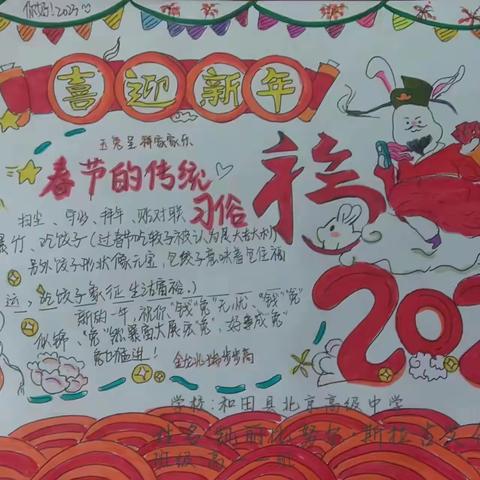 你好!2023
喜迎新年
玉兔呈祥家家乐
春节的传统
习俗
扫尘、守岁、拜年、贴对联
爆竹、吃饺子(过春节吃饺子被认为是大吉大利
另外饺子形状像元宝,包饺子意味着包住福
运,吃饺子象征生活富裕。)
新的一年,祝你“钱”兔”无忧、“钱”兔”
似锦、“兔”然暴富大展宏兔”,好事成兔”
福
202
学校:和田县北京高级中学
姓名 斯拉
班级 高